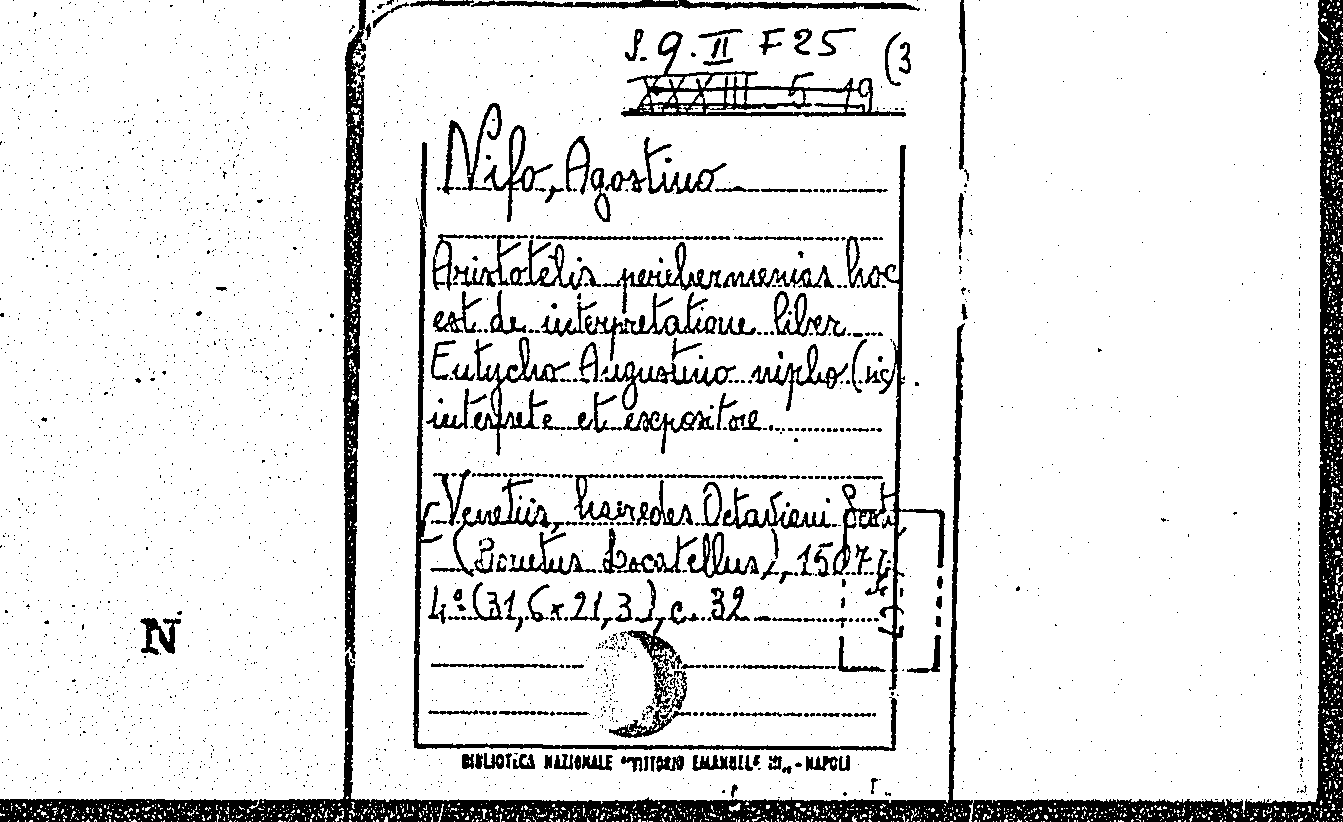 S. 9. II F 25 (3
XXXIII 5 19
Nifo, Agostino
Aristotelis perihermenias hoc
est de interpretatione liber
Eutycho Augustino nipho (sic)
interprete et expositore.
Venetiis, haeredes Octaviani Scoti,
(Bonetus Locatellus), 1507
4º (31,6 x 21,3), c. 32
N
BIBLIOTECA NAZIONALE "VITTORIO EMANUELE III„ - NAPOLI